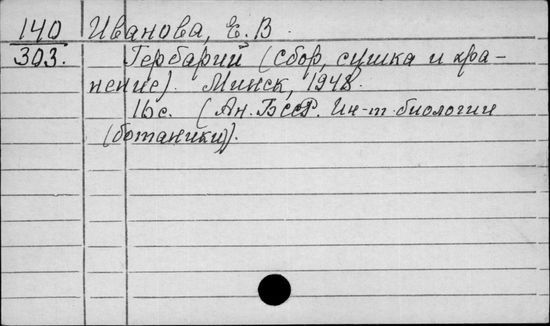 140 Иванова, Е. В
303. Гербарий (сбор, сушка и хра-
нение). Минск, 1948.
16с. (Ан. БССР. Ин-т биологии
(ботаники)).